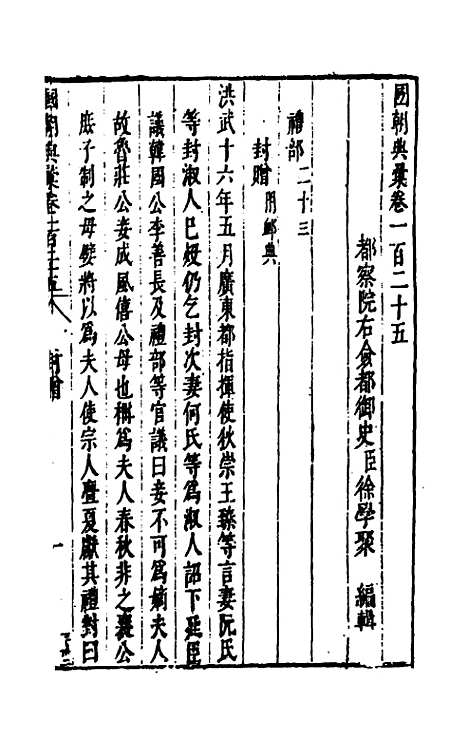 國朝典彙卷一百二十五
都察院右僉都御史臣徐學聚 編輯
禮部二十三
封贈附卹典
洪武十六年五月廣東都指揮使狄崇王臻等言妻阮氏
等封淑人已歿仍乞封次妻何氏等為淑人詔下廷臣
議韓國公李善長及禮部等官議曰妾不可為嫡夫人
故魯莊公妾成風僖公母也稱為夫人春秋非之襄公
庶子制之母嬖將以為夫人使宗人舋夏獻其禮對曰
國朝典彙卷一百二十五 封贈 一